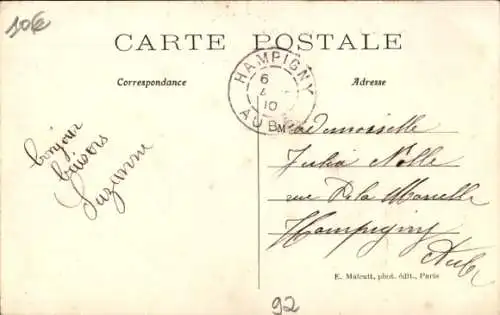 10€
CARTE POSTALE
Correspondance
Adresse
HAMPIGNY
6
4
10
AUBE
bonjour
baisers
Suzanne
Mademoiselle
Julia Nolle
rue De la
Hampigny
Aube
E. Malcuit, phot. édit., Paris
92